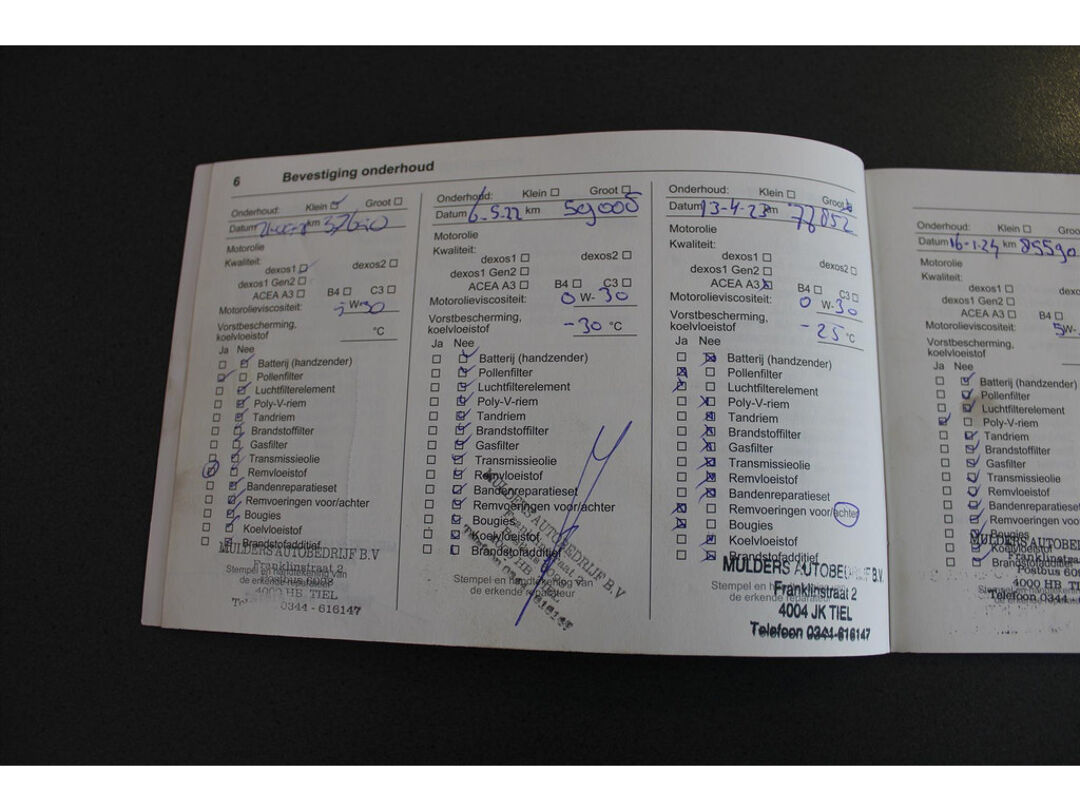 6 Bevestiging onderhoud
Onderhoud: Klein Groot
Datum km
Motorolie
Kwaliteit:
dexos1 dexos2
dexos1 Gen2
ACEA A3 B4 C3
Motorolieviscositeit: W-30
Vorstbescherming,
koelvloeistof °C
Ja Nee
Batterij (handzender)
Pollenfilter
Luchtfilterelement
Poly-V-riem
Tandriem
Brandstoffilter
Gasfilter
Transmissieolie
Remvloeistof
Bandenreparatieset
Remvoeringen voor/achter
Bougies
Koelvloeistof
Brandstofadditief
MULDERS AUTOBEDRIJF B.V
Franklinstraat 2
Stempel en handtekening van
Postbus 6098
de erkende reparateur
4000 HB TIEL
0344-616147
Onderhoud: Klein Groot
Datum 6-5-22 km 59005
Motorolie
Kwaliteit:
dexos1 dexos2
dexos1 Gen2
ACEA A3 B4 C3
Motorolieviscositeit: 0 W-30
Vorstbescherming,
koelvloeistof -30 °C
Ja Nee
Batterij (handzender)
Pollenfilter
Luchtfilterelement
Poly-V-riem
Tandriem
Brandstoffilter
Gasfilter
Transmissieolie
Remvloeistof
Bandenreparatieset
Remvoeringen voor/achter
Bougies
Koelvloeistof
Brandstofadditief
MULDERS AUTOBEDRIJF B.V
Stempel en handtekening van
de erkende reparateur
Onderhoud: Klein Groot
Datum 13-4-23 km 77852
Motorolie
Kwaliteit:
dexos1 dexos2
dexos1 Gen2
ACEA A3 B4 C3
Motorolieviscositeit: 0 W-30
Vorstbescherming,
koelvloeistof -25 °C
Ja Nee
Batterij (handzender)
Pollenfilter
Luchtfilterelement
Poly-V-riem
Tandriem
Brandstoffilter
Gasfilter
Transmissieolie
Remvloeistof
Bandenreparatieset
Remvoeringen voor/achter
Bougies
Koelvloeistof
Brandstofadditief
MULDERS AUTOBEDRIJF B.V.
Stempel en handtekening van
Franklinstraat 2
de erkende reparateur
4004 JK TIEL
Telefoon 0344-616147
Onderhoud: Klein Groo
Datum 16-1-24 km 85590
Motorolie
Kwaliteit:
dexos1
dexos1 Gen2
ACEA A3 B4
Motorolieviscositeit: 5W-
Vorstbescherming,
koelvloeistof
Ja Nee
Batterij (handzender)
Pollenfilter
Luchtfilterelement
Poly-V-riem
Tandriem
Brandstoffilter
Gasfilter
Transmissieolie
Remvloeistof
Bandenreparatieset
Remvoeringen voor/achte
Bougies
Koelvloeistof
Brandstofadditief
MULDERS AUTOBED
Franklinstra
Postbus 609
4000 HB TI
Telefoon 0344-